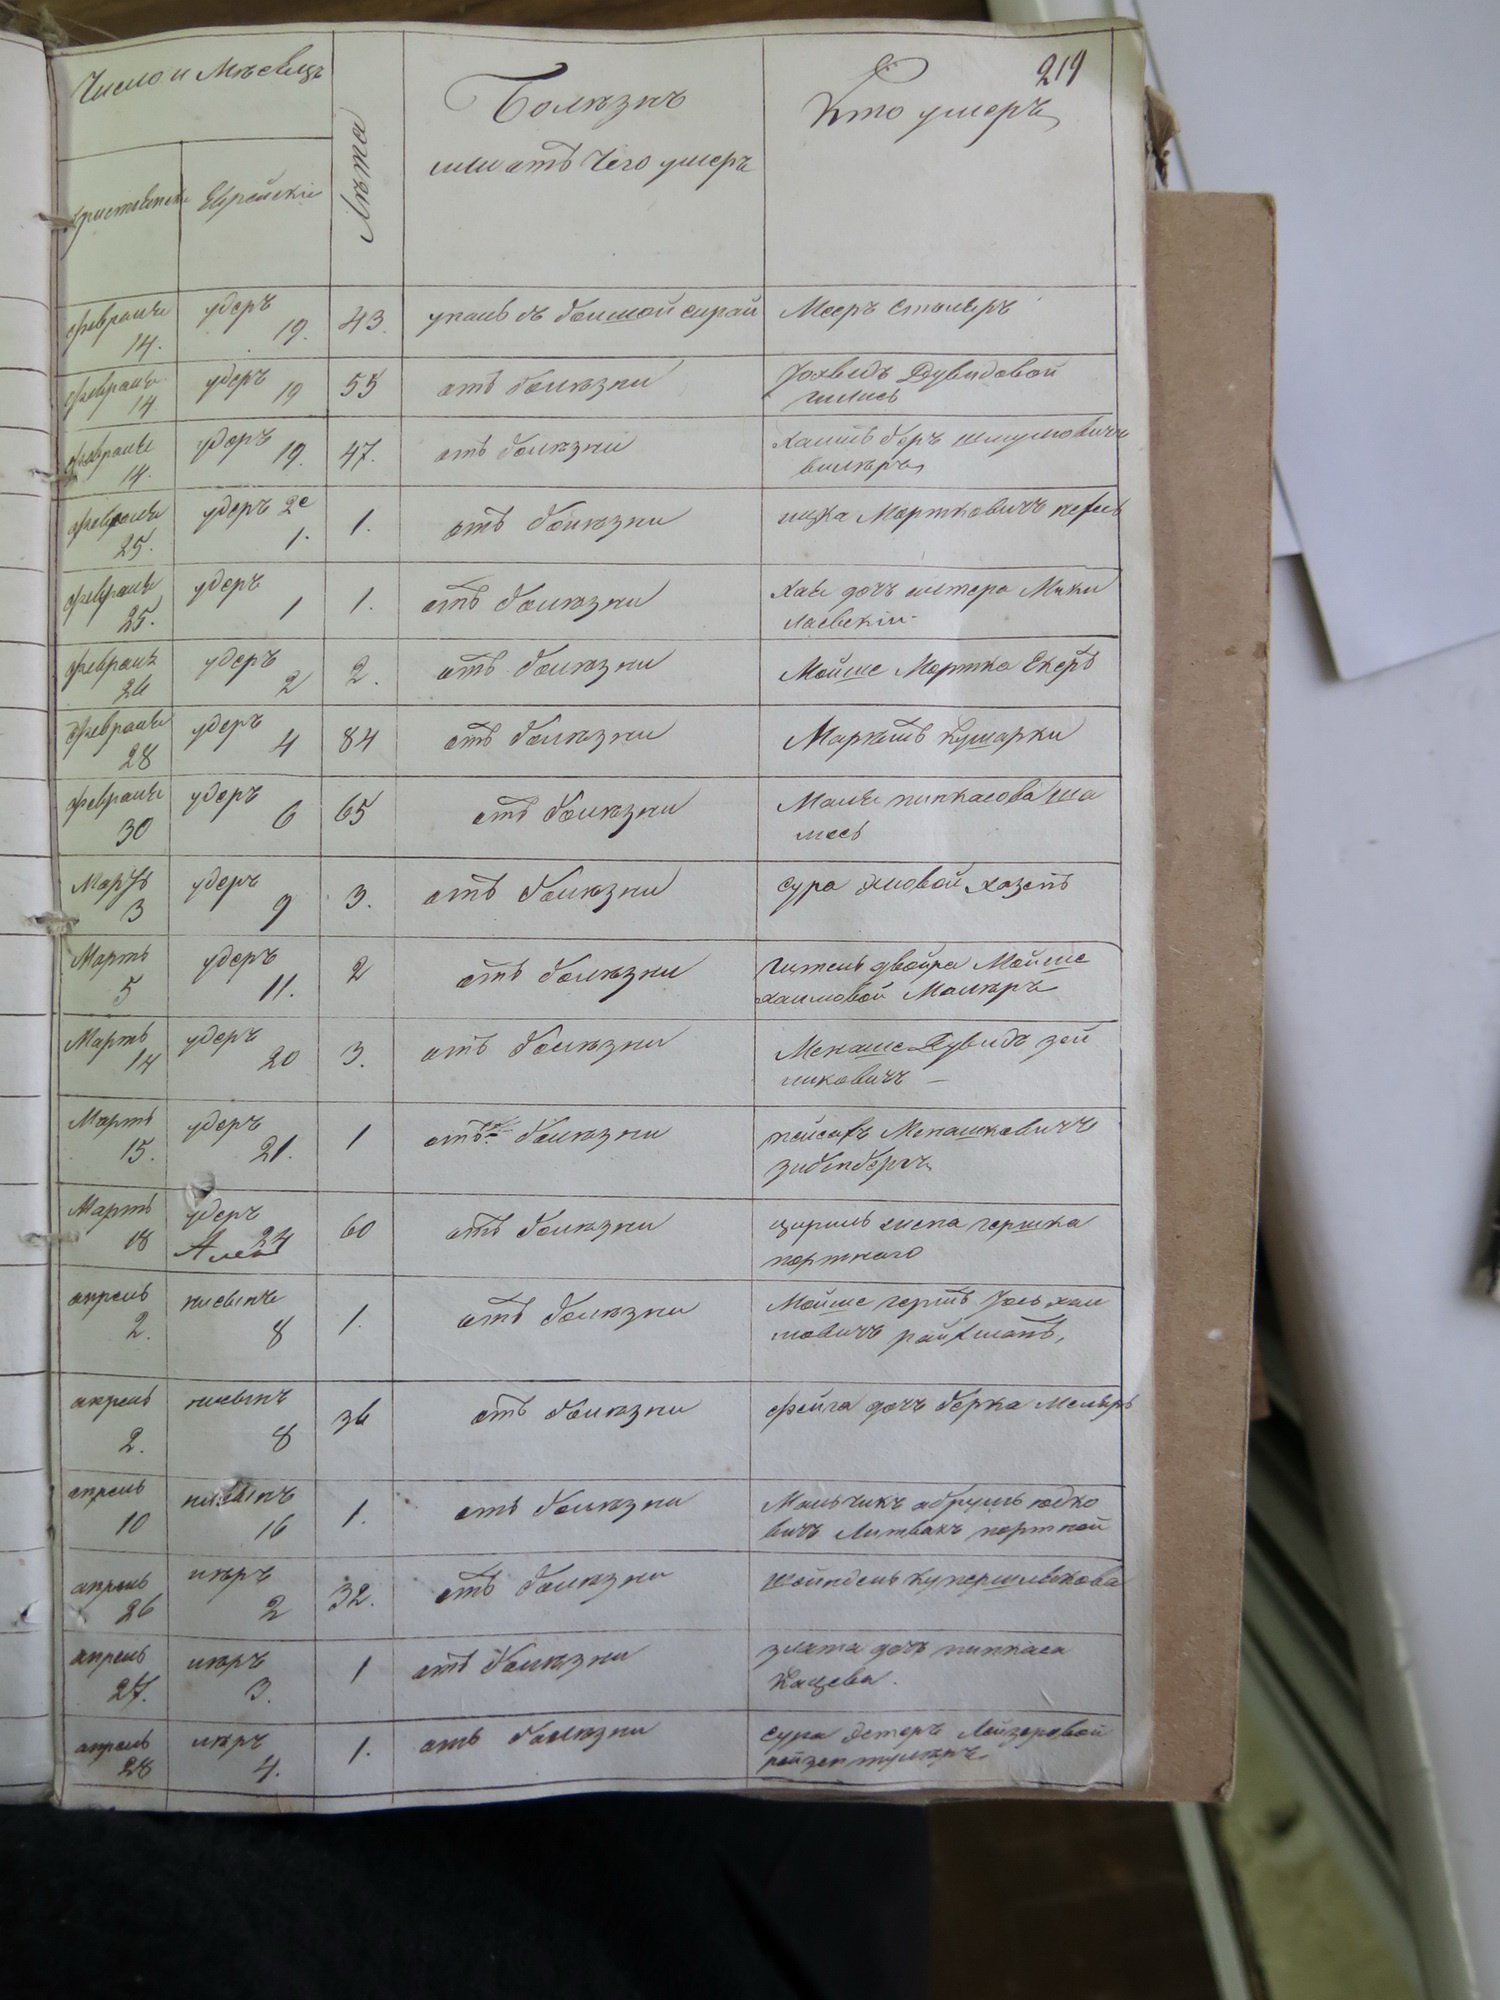 219
Число и Мѣсецъ
Лѣта
Болѣзнь
или отъ Чего умеръ
Кто умеръ
Еврейскіе
февраля 14. удеръ 19. 43. упалъ Мееръ Столяръ
февраля 14 удеръ 19 55 отъ болѣзни Дувидовой
февраля 14. удеръ 19. 47. отъ болѣзни
февраля 25. удеръ 2е 1. 1. отъ болѣзни Мортковичъ
февраля 25. удеръ 1 1. отъ болѣзни Хая дочъ Мики
лаевскій
февраля 26 удеръ 2 2. отъ болѣзни Мойше Мортка
февраля 28 удеръ 4 84 отъ болѣзни Кушарки
февраля 30 удеръ 6 65 отъ болѣзни Маля пинкасова ша
месъ
Мартъ 3 удеръ 9 3. отъ болѣзни сура хазенъ
Мартъ 5 удеръ 11. 2 отъ болѣзни гитель двойра Мойше
хаимовой Маляръ
Мартъ 14 удеръ 20 3. отъ болѣзни Менаше Дувидъ зей
ликовичъ
Мартъ 15. удеръ 21. 1 отъ болѣзни пейсахъ Менашковичъ
зибенбергъ
Мартъ 18 удеръ 24 60 отъ болѣзни гершка
портнаго
апрель 2. нисынъ 8 1. отъ болѣзни Мойше гершъ Мось хаи
мовичъ райхманъ,
апрель 2. нисынъ 8 36 отъ болѣзни фейга дочъ берка
апрель 10 нисынъ 16 1. отъ болѣзни Мальчикъ абрумъ юдко
вичъ Литвакъ портной
апрель 26 ияръ 2 32. отъ болѣзни шейндель
апрель 27. ияръ 3. 1 отъ болѣзни злата дочъ пинкаса
Кацева.
апрель 28 ияръ 4. 1. отъ болѣзни сура эстеръ Лейзеровой